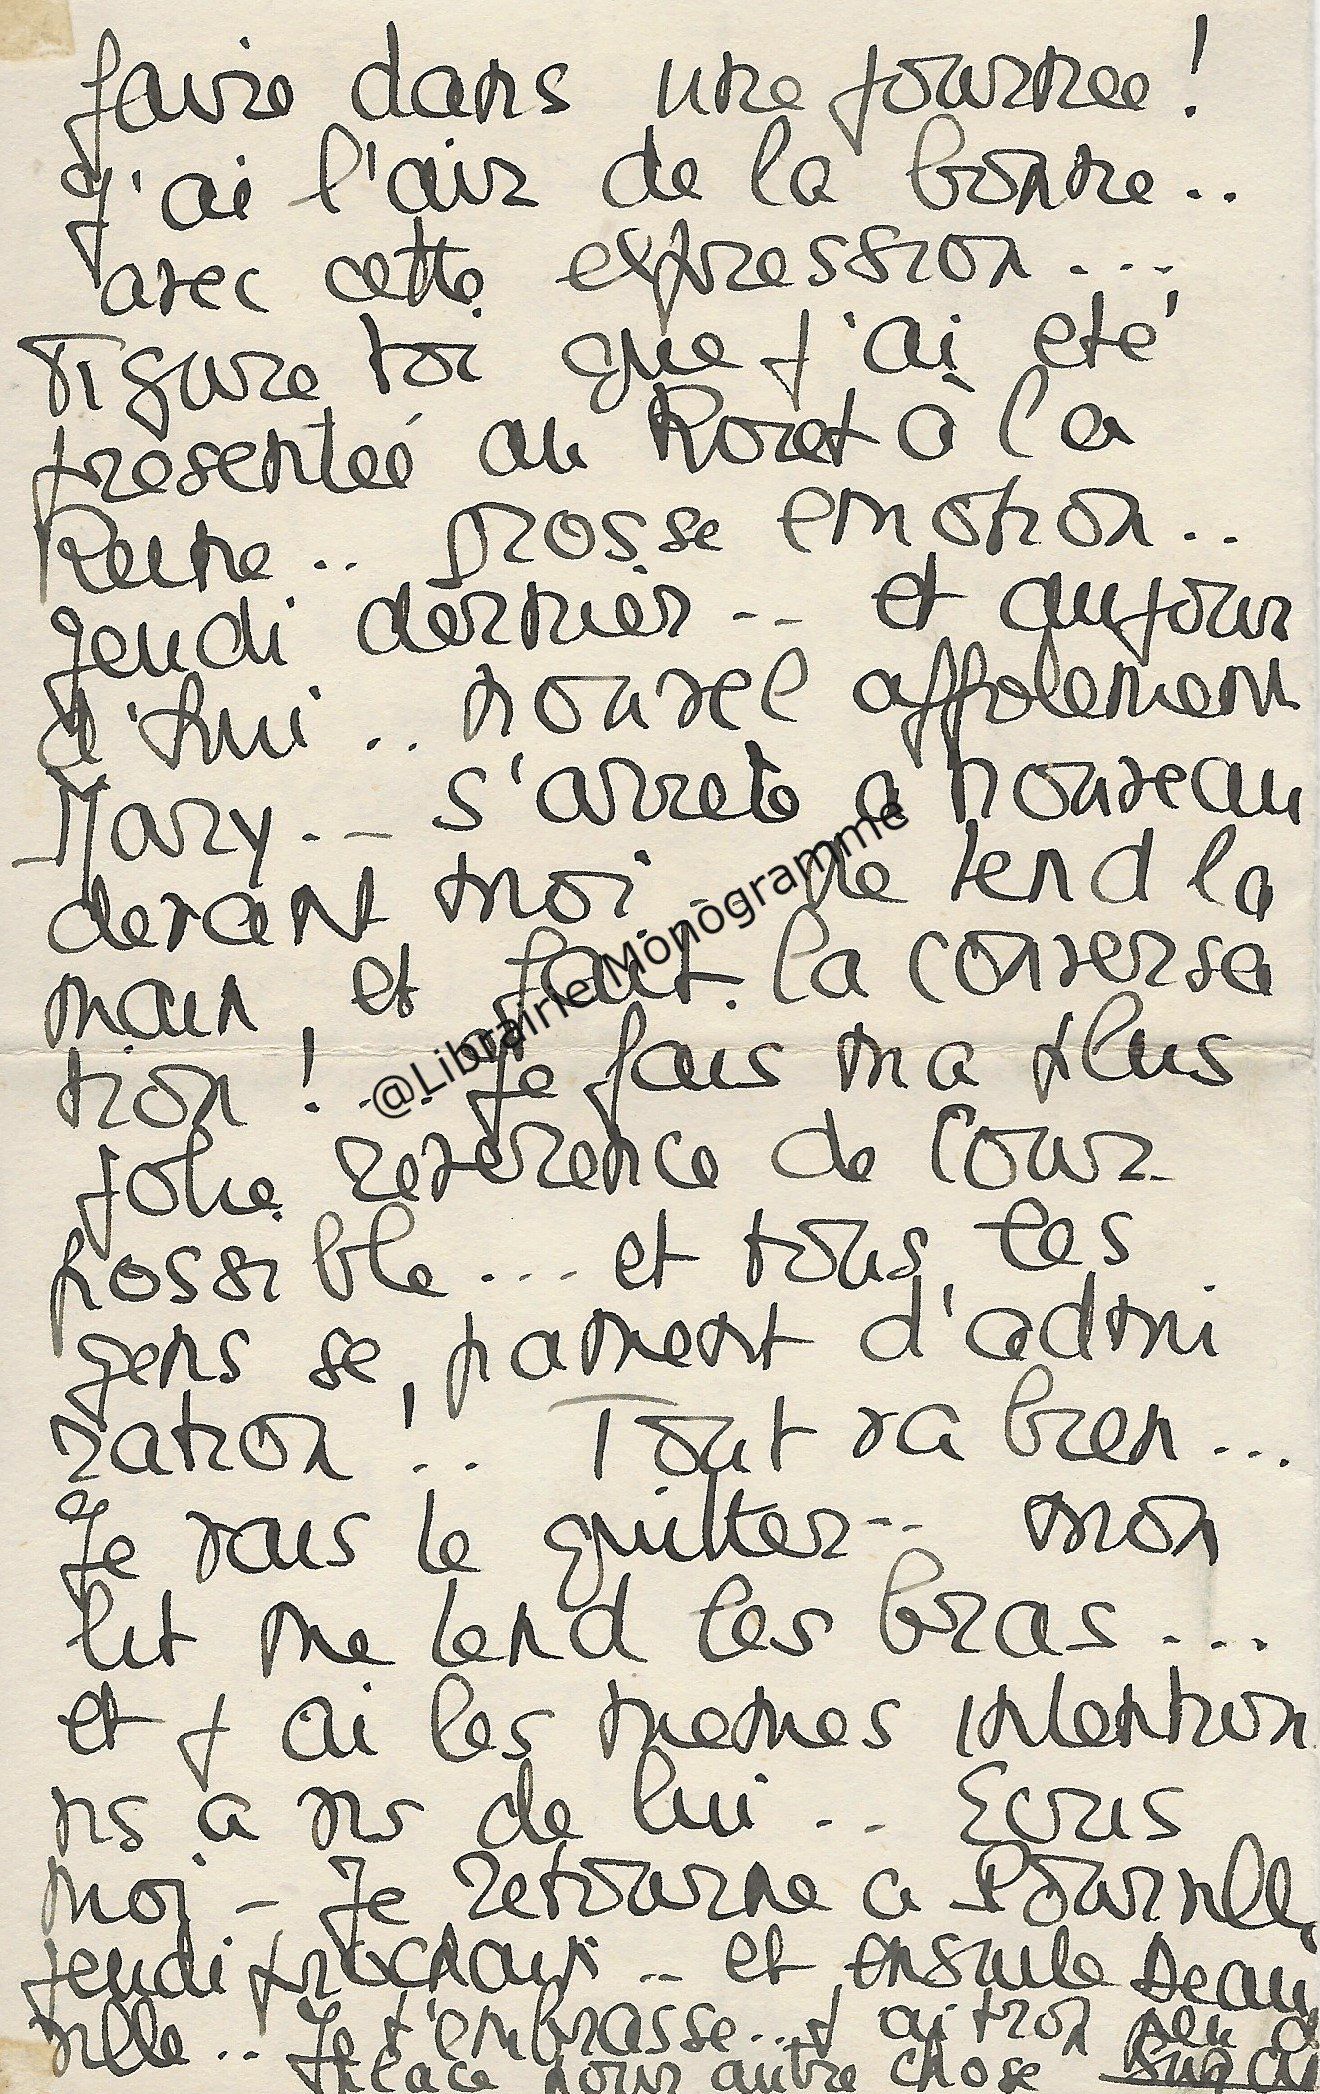 faire dans une journee !
J'ai l'air de la bonne ..
avec cette expression ...
Figure toi que j'ai eté
presenteé au Roret à la
Reine .. grosse emotion ..
Jeudi dernier .. et aujour
d'hui .. nouvel affolement
Mary .. s'arrete a nouveau
devant moi .. me tend la
main, et fait la conversa
tion ! ... Je fais ma plus
jolie reverence de Cour
possible ... et tous les
gens se pament d'admi
ration ! .. Tout va bien ...
Je vais te quitter .. mon
lit me tend les bras ...
et j'ai les memes intention
ns a vis de lui .. Ecris
moi - Je retourne a
jeudi prochain .. et ensuite Deau
ville .. Je t'embrasse ... J'ai trop peu d
place pour autre chose
@Librairie Monogramme